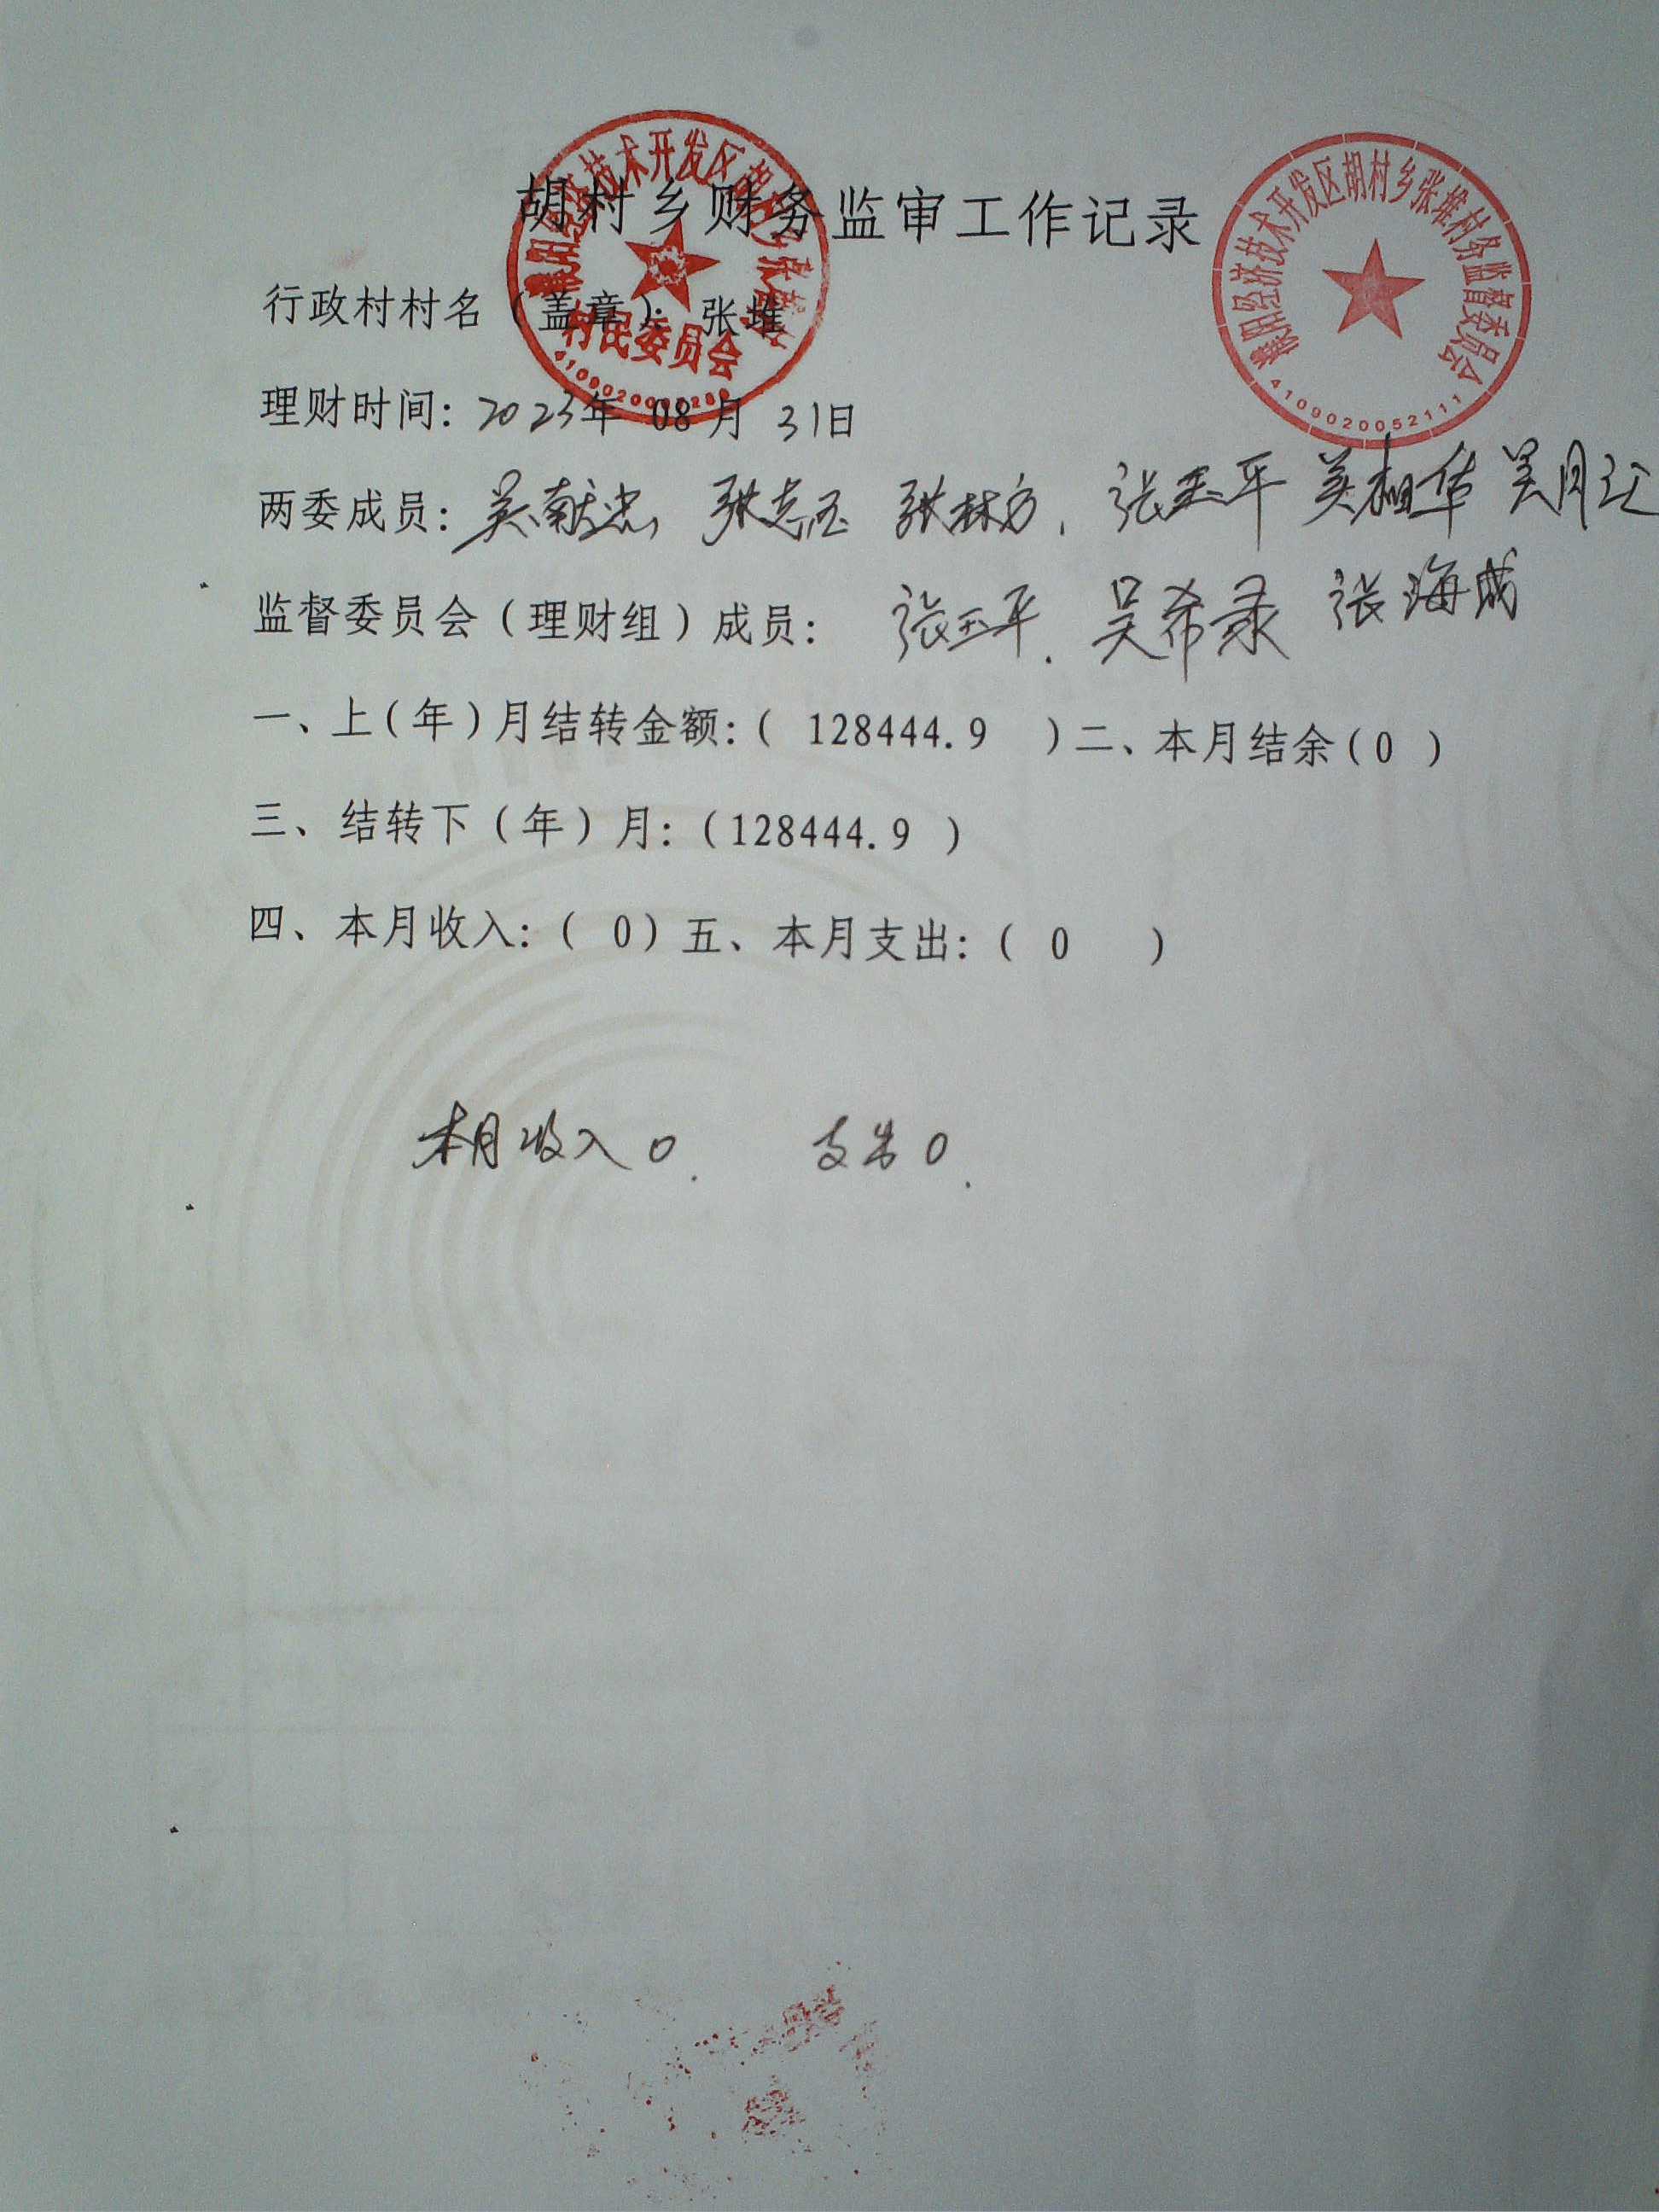 胡村乡财务监审工作记录
濮阳经济技术开发区胡村乡张堆村务监督委员会
4109020052111
村民委员会
行政村村名（盖章）：张堆
理财时间：2023年 08月 31日
两委成员：吴献忠 张志玉 张林方、张玉平 吴相华 吴月
监督委员会（理财组）成员：张玉平、吴希录 张海成
一、上（年）月结转金额：（ 128444.9 ）二、本月结余（0 ）
三、结转下（年）月：（128444.9 ）
四、本月收入：（ 0）五、本月支出：（ 0 ）
本月收入0. 支出0.